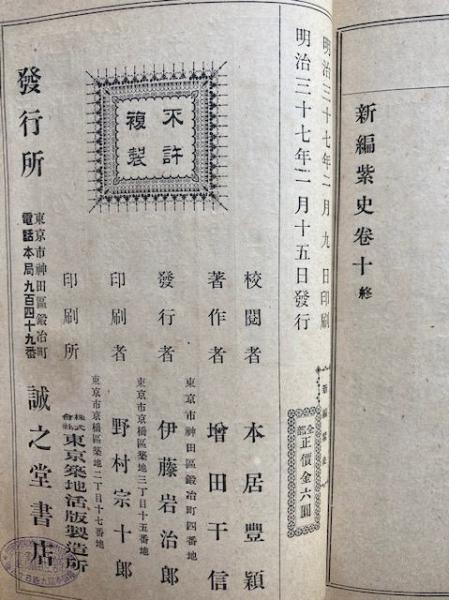 新編紫史卷十終
明治三十七年二月九日印刷
明治三十七年二月十五日發行
新編紫史
全部正價金六圓
不許複製
校閲者 本居豐穎
著作者 增田于信
東京市神田區鍛冶町四番地
發行者 伊藤岩治郎
東京市京橋區築地三丁目十五番地
印刷者 野村宗十郎
東京市京橋區築地二丁目十七番地
印刷所 株式會社東京築地活版製造所
發行所
東京市神田區鍛冶町
電話本局九百四十九番
誠之堂書店